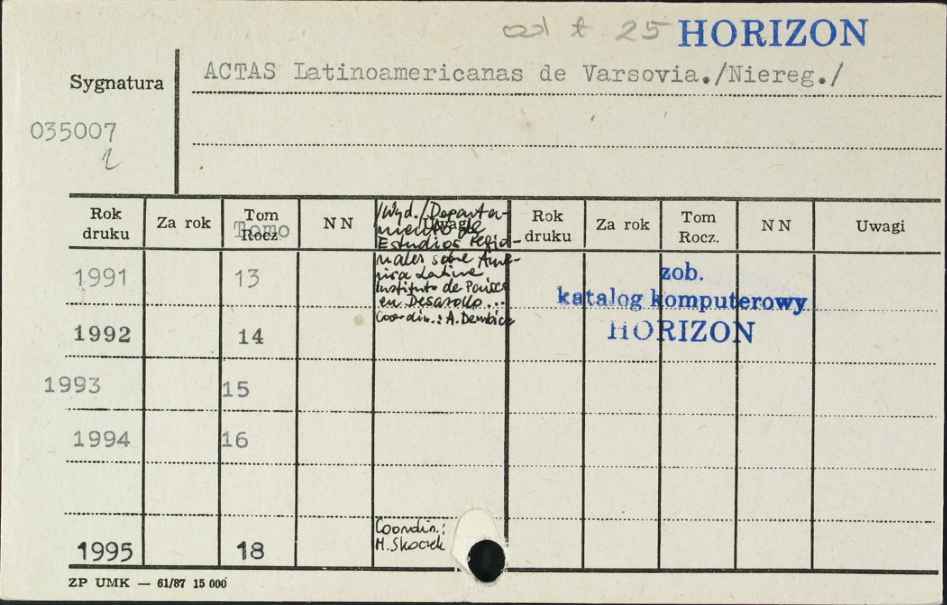 od t 25 HORIZON
Sygnatura ACTAS Latinoamericanas de Varsovia./Niereg./
035007
Rok druku Za rok Tom Rocz. Tomo N N Uwagi Rok druku Za rok Tom Rocz. N N Uwagi
/Wyd./Departa-
miento de
Estudios Regio-
nales sobre Amé-
rica Latina
Instituto de Países
en Desarollo...
Coordin.: A. Dembicz
1991 13
zob.
katalog komputerowy
HORIZON
1992 14
1993 15
1994 16
Coordin.:
M. Skoczek
1995 18
ZP UMK — 61/87 15 000